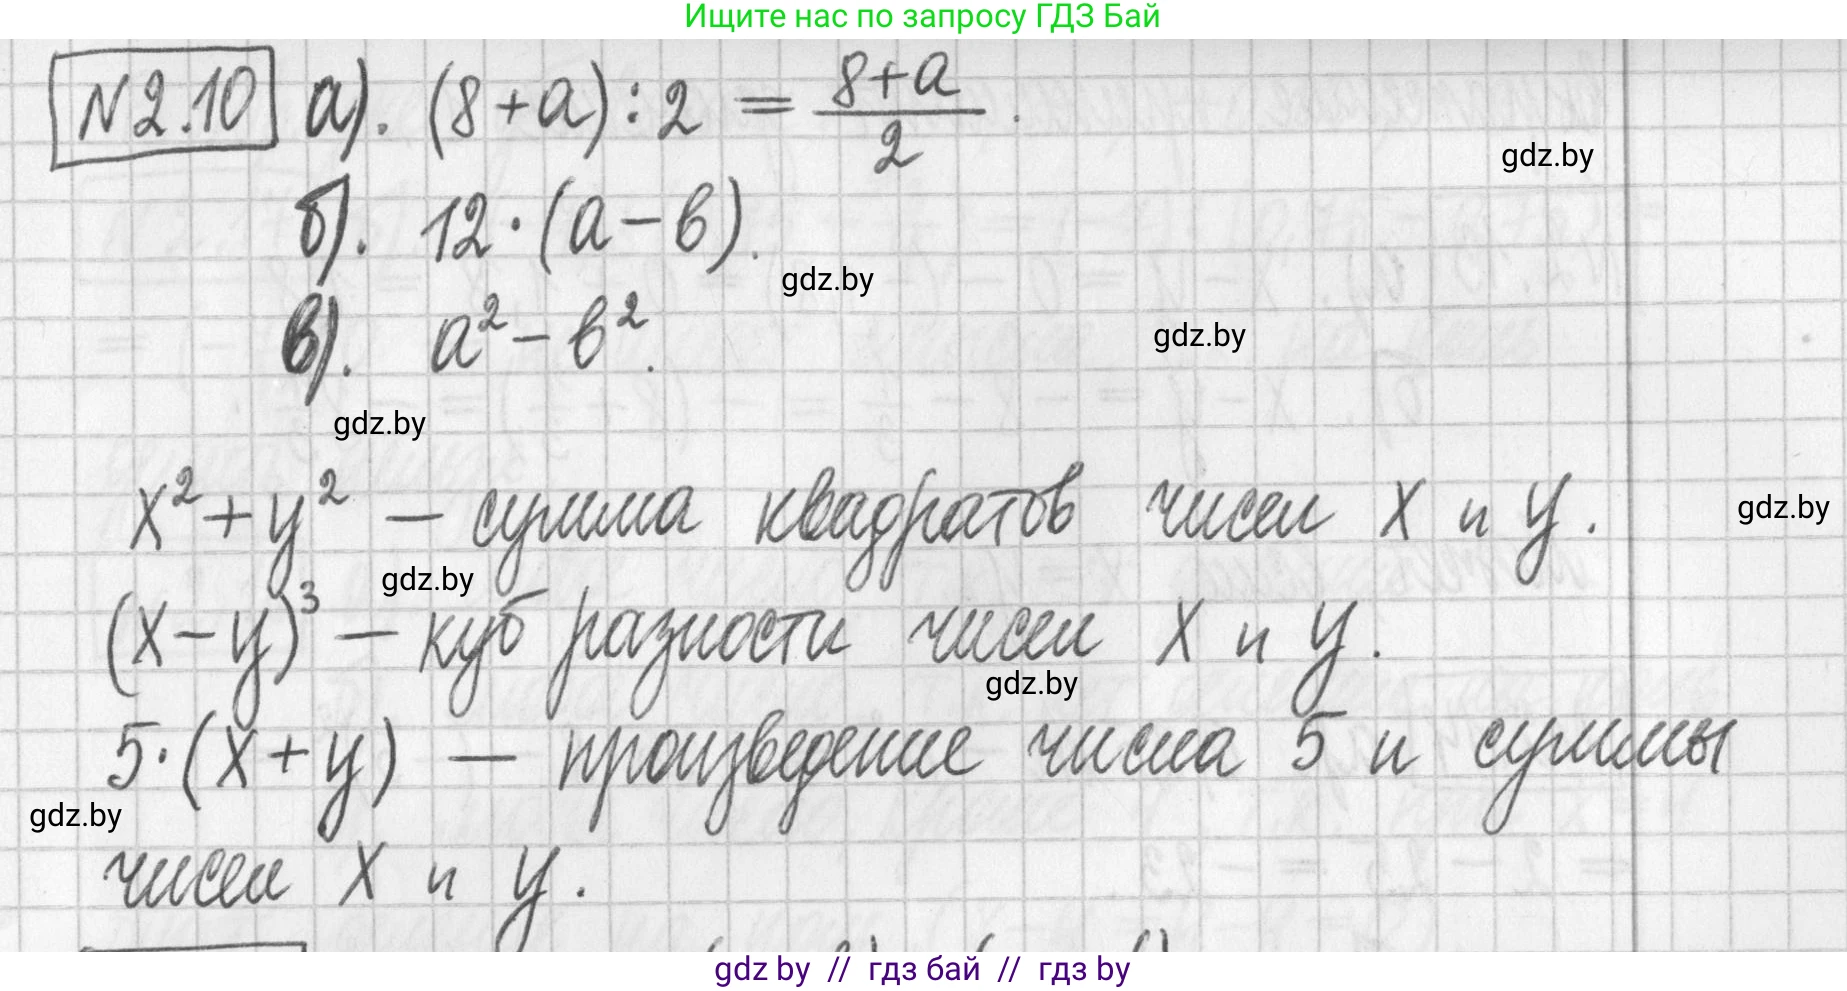 Ищите нас по запросу ГДЗ Бай
N2.10 а). (8+a):2 = \frac{8+a}{2}.
gdz.by
б). 12·(a-b).
gdz.by
в). a²-b².
gdz.by
gdz.by
x²+y² — сумма квадратов чисел x и y.
gdz.by
gdz.by
(x-y)³ — куб разности чисел x и y.
gdz.by
5·(x+y) — произведение числа 5 и суммы
gdz.by
чисел x и y.
gdz by // гдз бай // гдз by